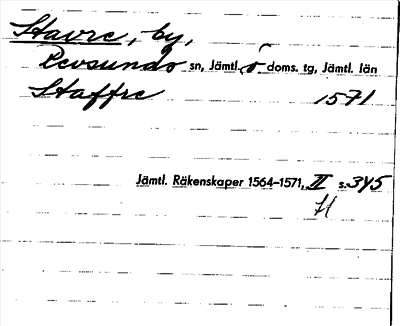 Stavre, by,
Revsunds sn, Jämtl. ö doms. tg, Jämtl. län
Staffre 1571
Jämtl. Räkenskaper 1564-1571, II s. 345